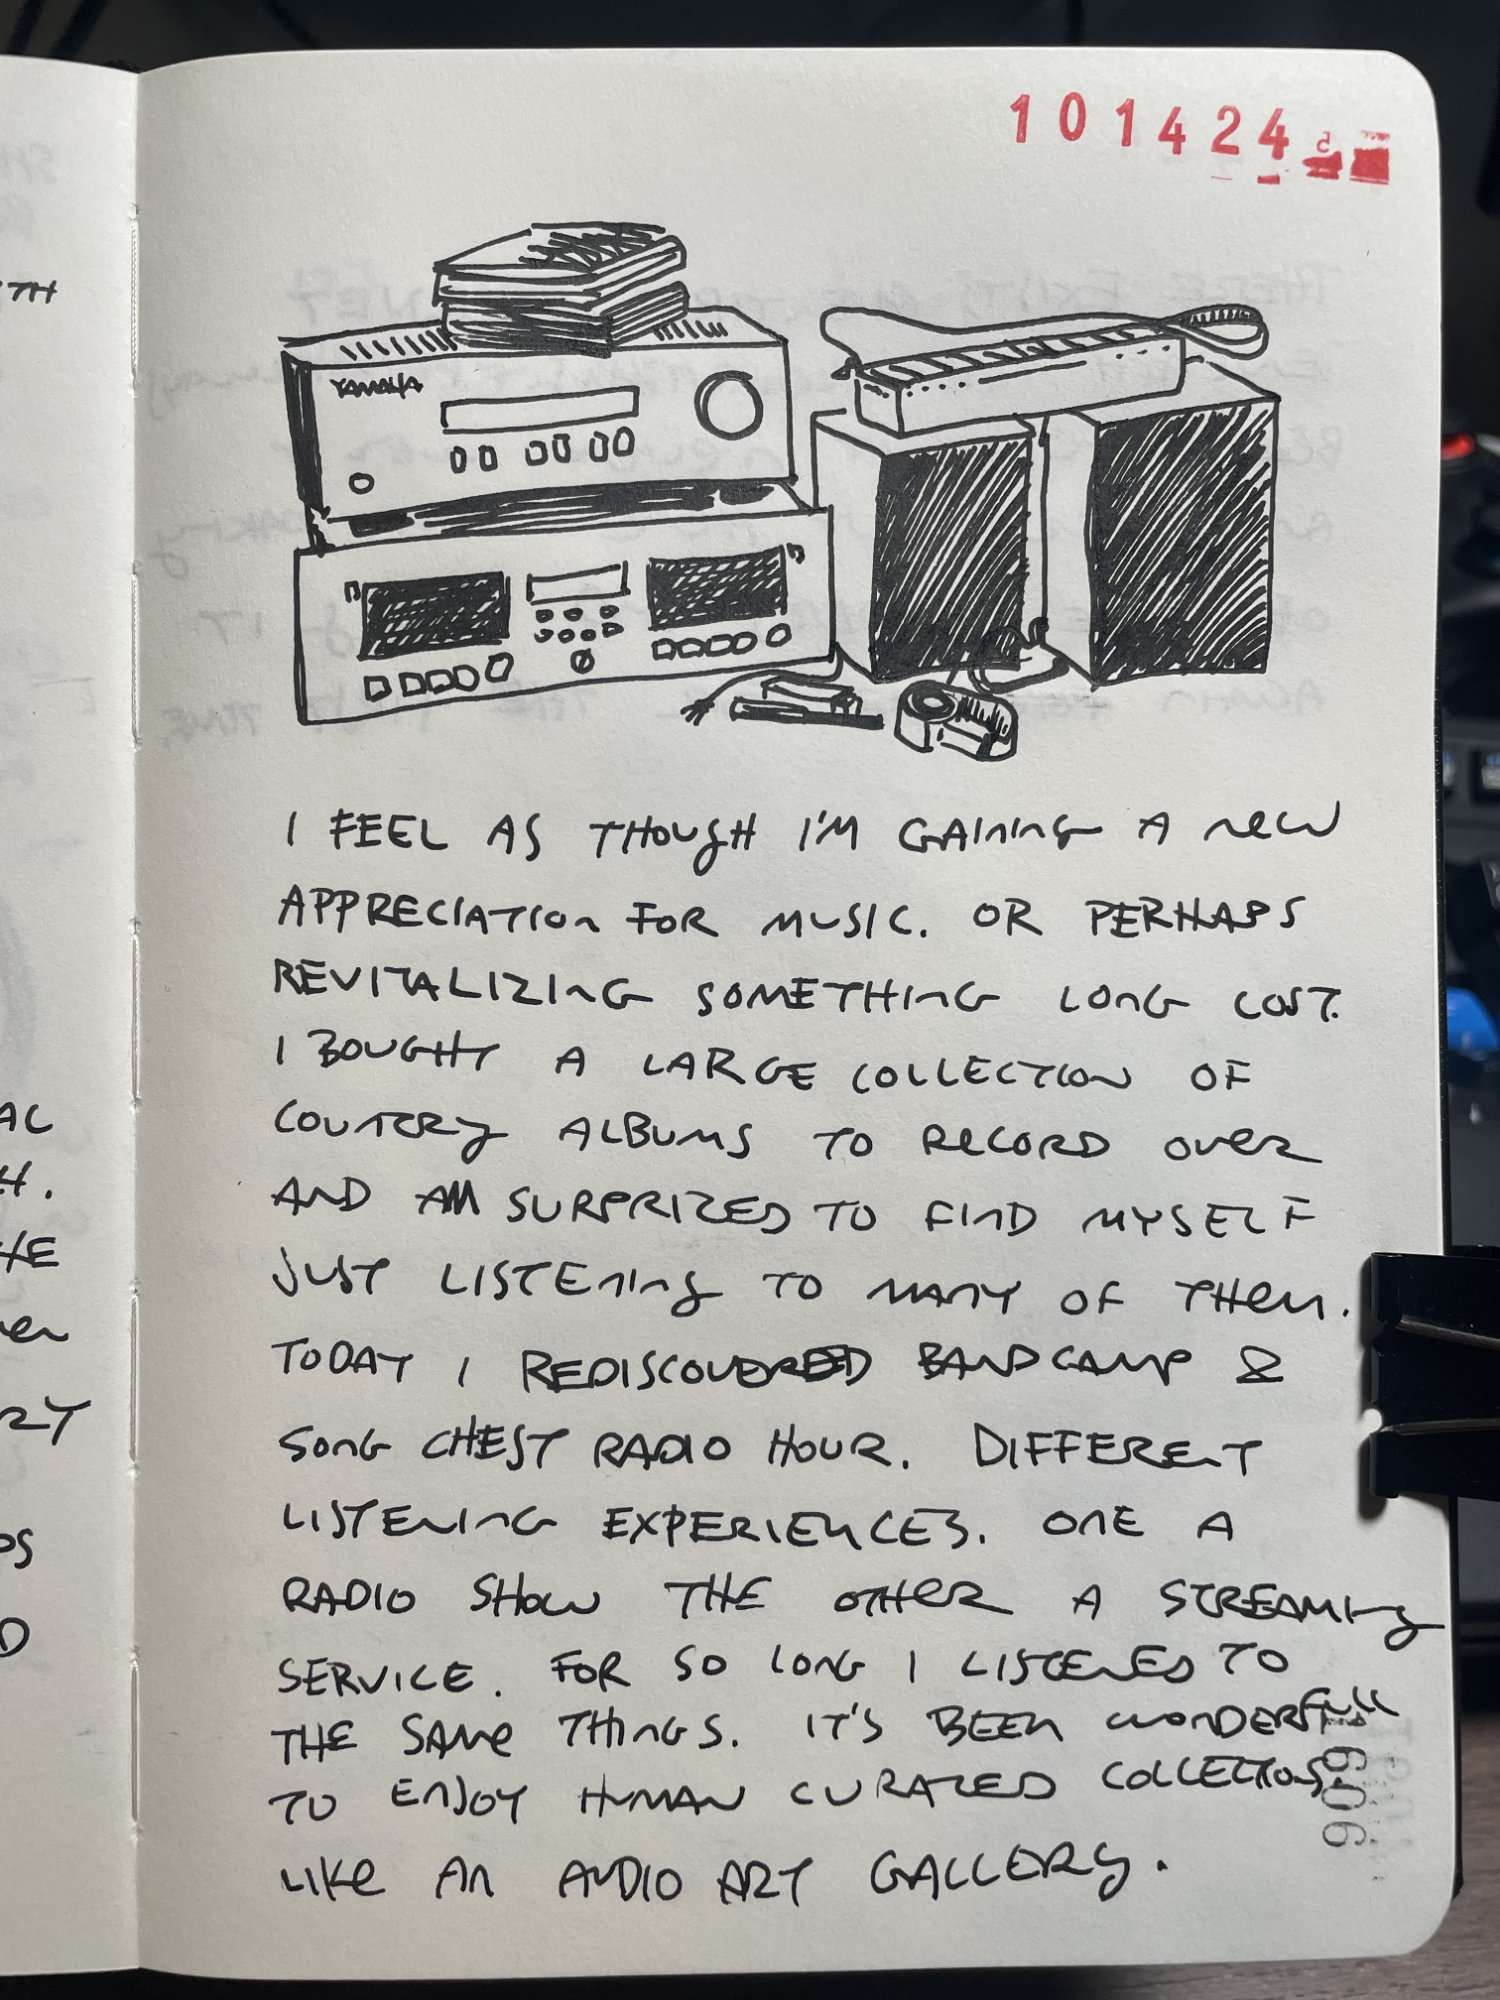 101424
YAMAHA
I FEEL AS THOUGH I'M GAINING A NEW
APPRECIATION FOR MUSIC. OR PERHAPS
REVITALIZING SOMETHING LONG LOST.
I BOUGHT A LARGE COLLECTION OF
COUNTRY ALBUMS TO RECORD OVER
AND AM SURPRIZED TO FIND MYSELF
JUST LISTENING TO MANY OF THEM.
TODAY I REDISCOVERED BANDCAMP &
SONG CHEST RADIO HOUR. DIFFERENT
LISTENING EXPERIENCES. ONE A
RADIO SHOW THE OTHER A STREAMING
SERVICE. FOR SO LONG I LISTENED TO
THE SAME THINGS. IT'S BEEN WONDERFULL
TO ENJOY HUMAN CURATED COLLECTIONS
LIKE AN AUDIO ART GALLERY.
906